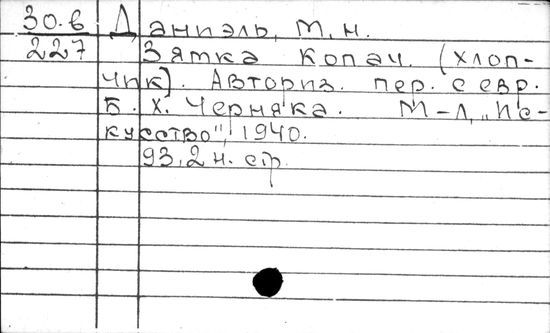 30.6 Даниэль, М. Н.
227 Зятка Копач. (хлоп-
чик). Авториз. пер. с евр.
Б. Х. Черняка. М-Л, „Ис-
кусство", 1940.
93, 2 н. стр.